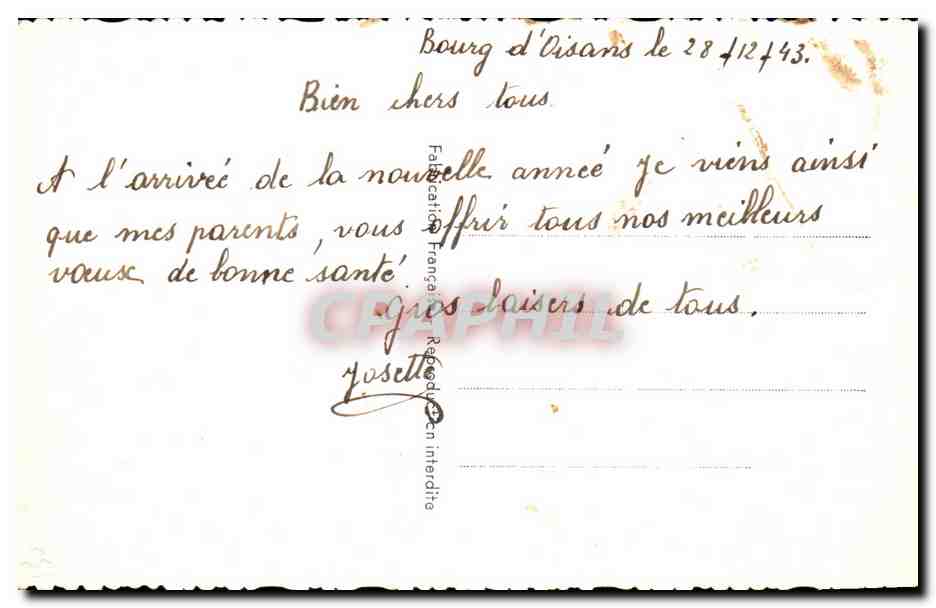 Bourg d'Oisans le 28/12/43.
Bien chers tous
A l'arrivée de la nouvelle année je viens ainsi
que mes parents, vous offrir tous nos meilleurs
vœux de bonne santé.
Gros baisers de tous.
Josette
Fabrication Française - Reproduction interdite
CPAPHIL